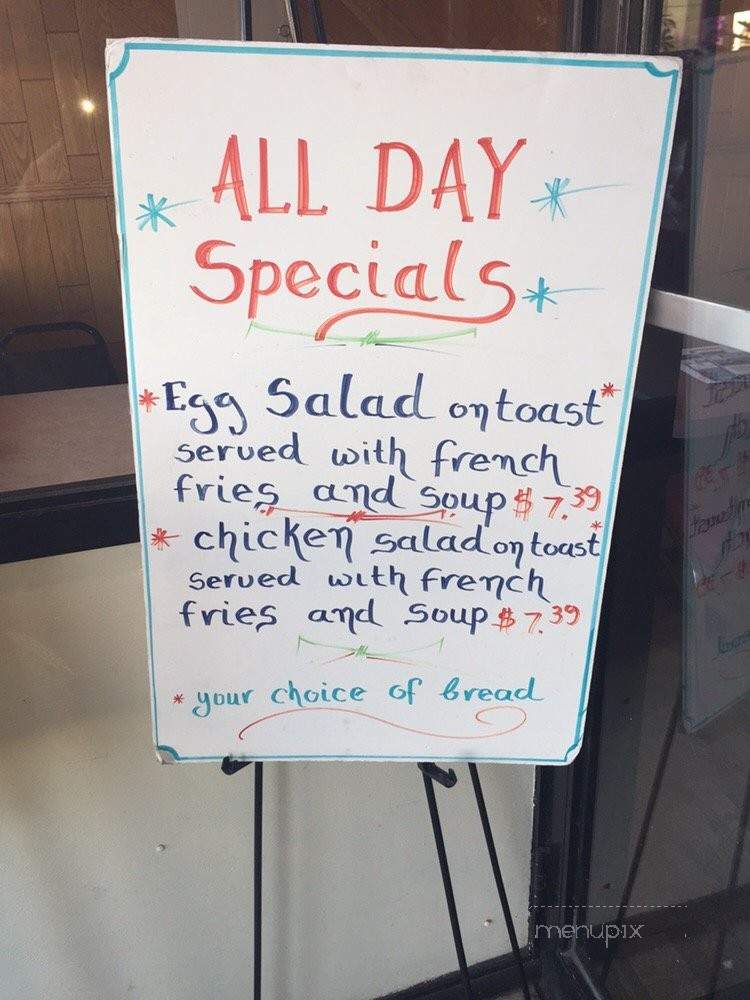 ALL DAY
Specials
Egg Salad on toast
served with french
fries and soup $7.39
chicken salad on toast
served with french
fries and soup $7.39
* your choice of bread
menupix